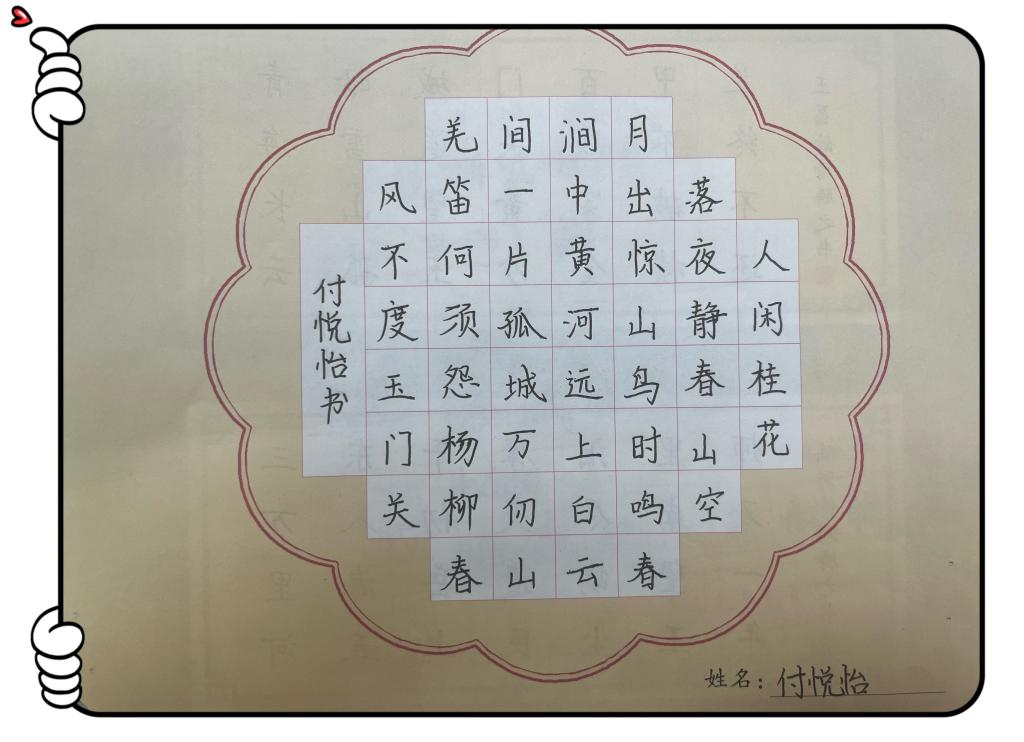 人闲桂花
落夜静春山空
月出惊山鸟时鸣春
涧中黄河远上白云
间一片孤城万仞山
羌笛何须怨杨柳春
风不度玉门关
付悦怡书
姓名：付悦怡